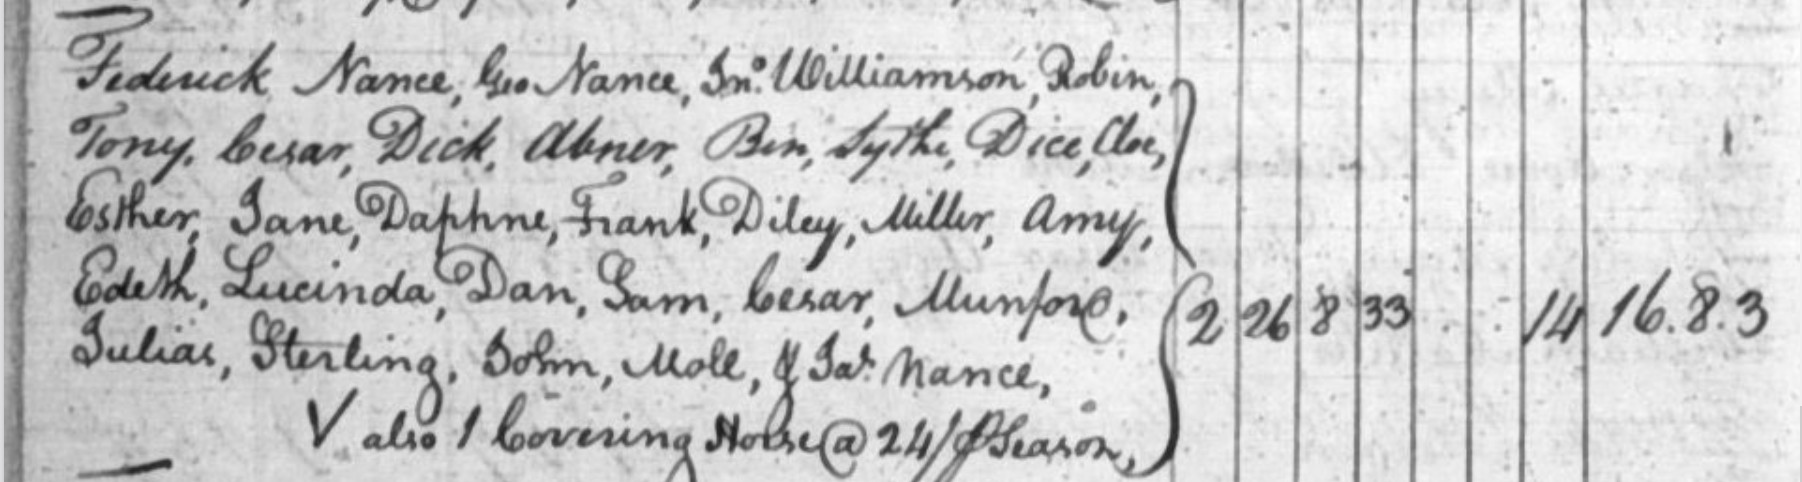 Federick Nance, Geo Nance, Jno. Williamson, Robin,
Tony, Cesar, Dick, Abner, Ben, Sythe, Dice, Cloe,
Esther, Jane, Daphne, Frank, Diley, Miller, Amy,
Edeth, Lucinda, Dan, Sam, Cesar, Munford,
Julias, Sterling, John, Moll, & Jas. Nance,
V also 1 Covering Horse @ 24/ ⅌ Season, 2 26 8 33 14 16.8.3